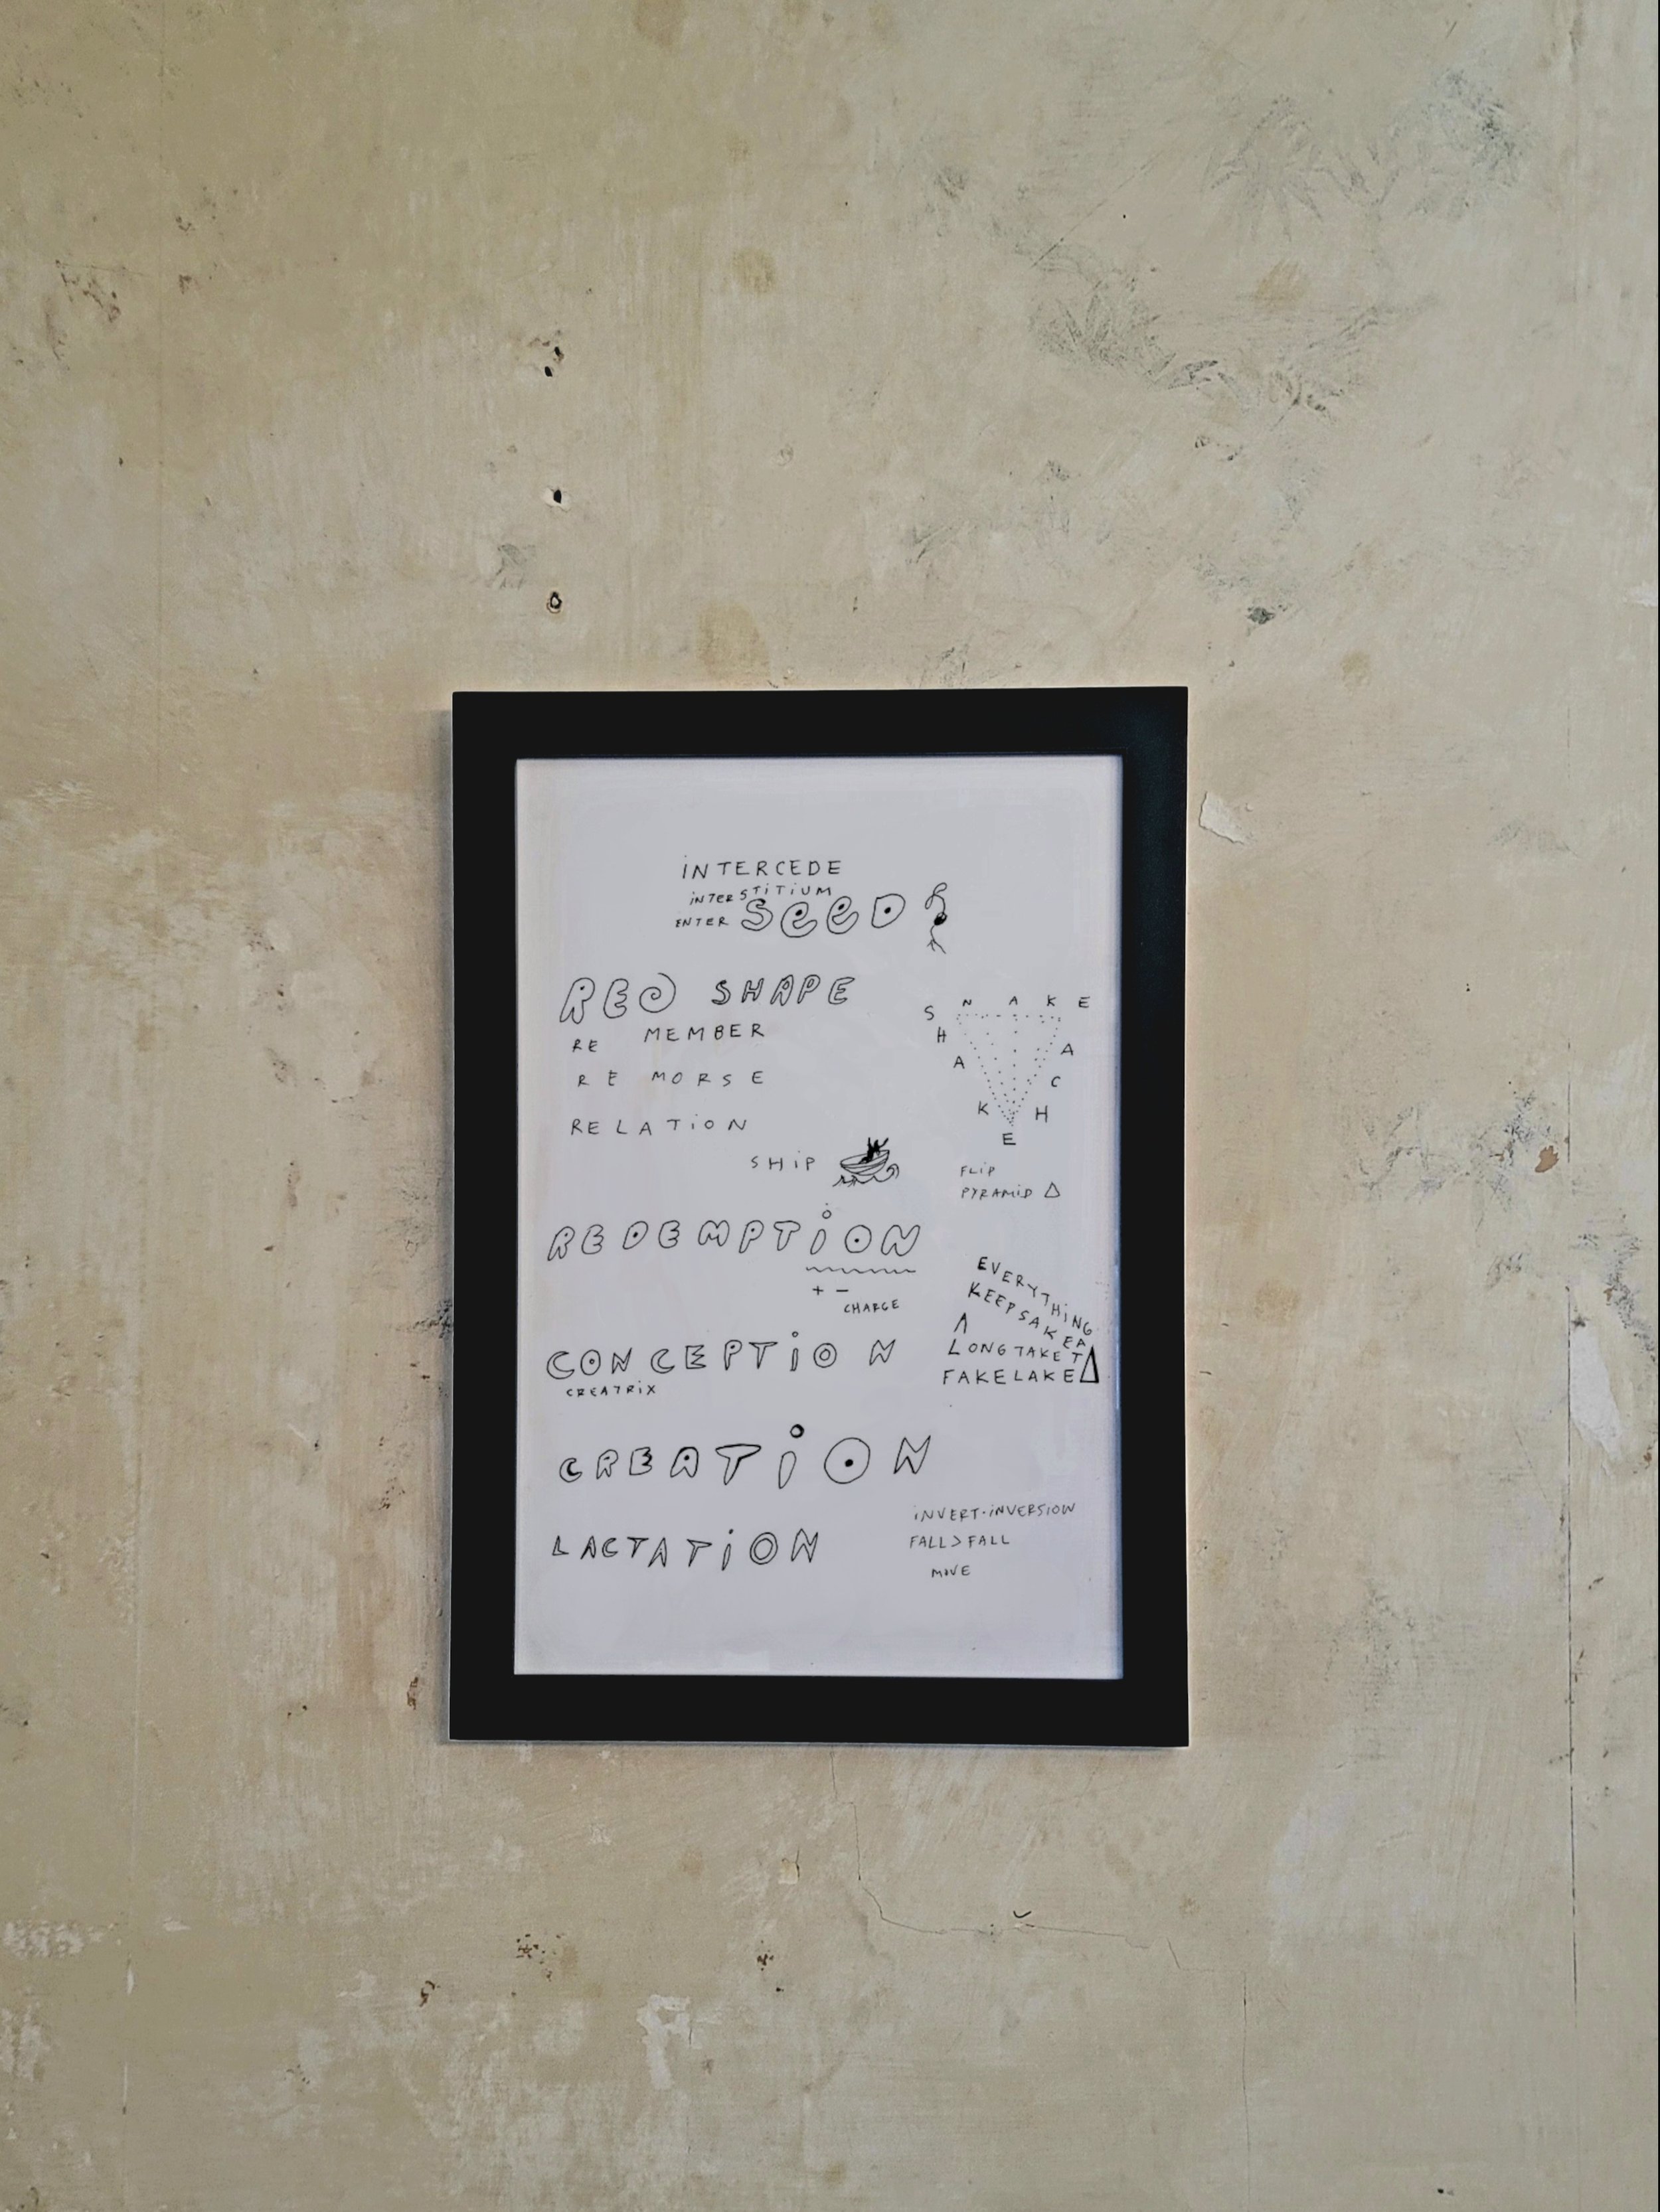 iNTERCEDE
iNTERSTiTiUM
ENTER SeeD
RE SHAPE
RE MEMBER
RE MORSE
RELATiON
SHiP
S N A K E
H A K E
A C H
FLiP
PYRAMiD Δ
REDEMPTiON
+ −
CHARGE
EVERYTHiNG
KEEPSAKE
Λ
LONGTAKE
FAKELAKE
EAT Δ
CONCEPTiON
CREATRiX
CREATiON
LACTATiON
iNVERT·iNVERSiON
FALL>FALL
MOVE